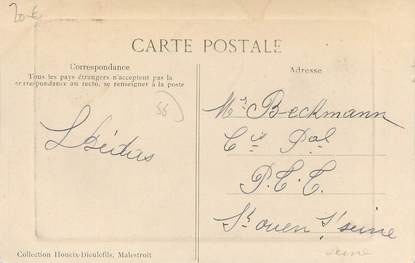 20-€
CARTE POSTALE
Correspondance
Tous les pays étrangers n'acceptent pas la
correspondance au recto, se renseigner à la poste
56
Adresse
Mr Beckmann
P.T.T.
St ouen s/ seine
Seine
Collection Houeix-Dieulefils, Malestroit